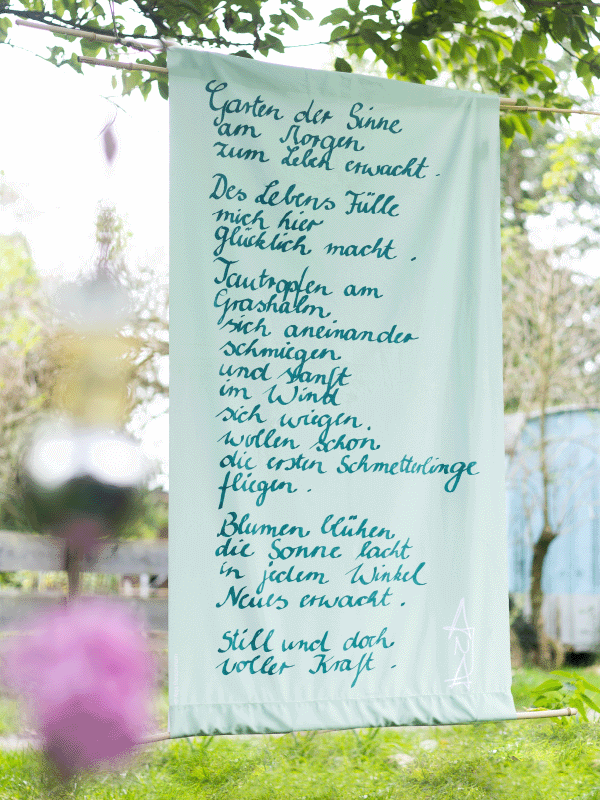 Garten der Sinne
am Morgen
zum Leben erwacht.
Des Lebens Fülle
mich hier
glücklich macht.
Tautropfen am
Grashalm,
sich aneinander
schmiegen
und sanft
im Wind
sich wiegen,
wollen schon
die ersten Schmetterlinge
fliegen.
Blumen blühen,
die Sonne lacht
in jedem Winkel
Neues erwacht.
Still und doch
voller Kraft.